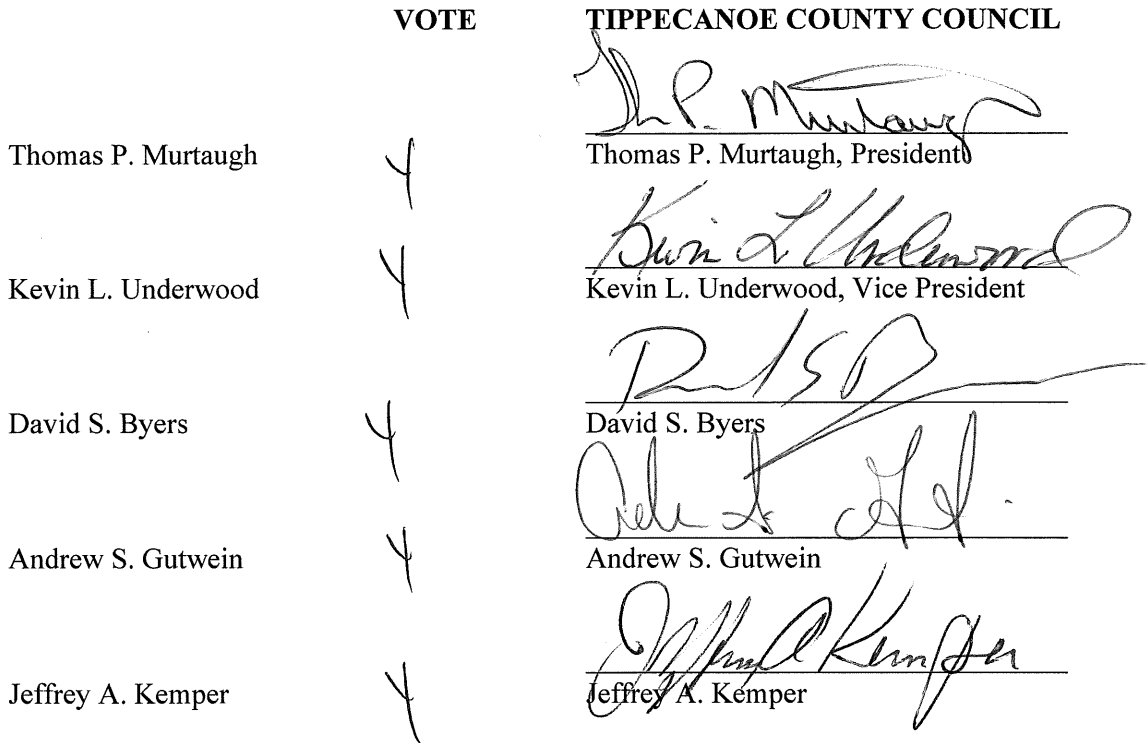 VOTE TIPPECANOE COUNTY COUNCIL
Th P. Murtaugh
Thomas P. Murtaugh Y Thomas P. Murtaugh, President
Kevin L Underwood
Kevin L. Underwood Y Kevin L. Underwood, Vice President
David S. Byers Y David S. Byers
Andrew S. Gutwein Y Andrew S. Gutwein
Jeffrey A Kemper
Jeffrey A. Kemper Y Jeffrey A. Kemper